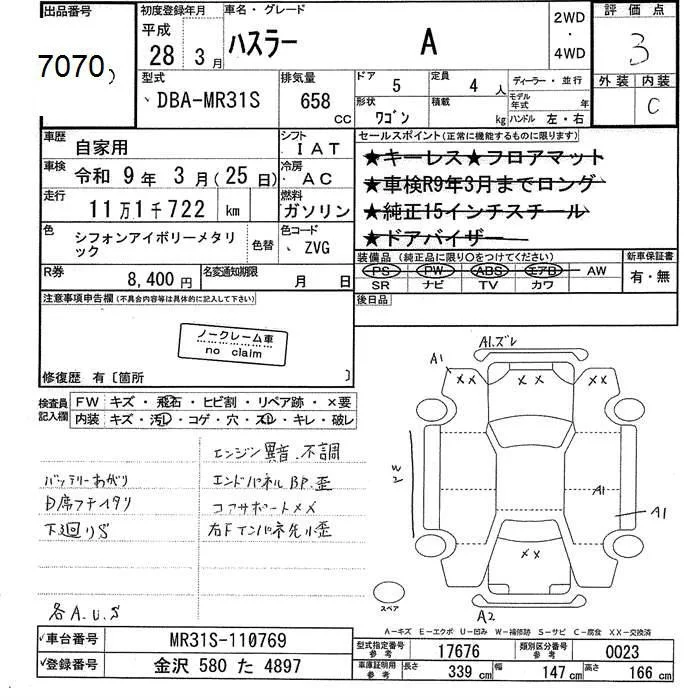 出品番号
7070
初度登録年月
平成
28 3月
車名・グレード
ハスラー A
2WD
・
4WD
評価点
3
外装 内装
C
型式
DBA-MR31S
排気量
658 cc
ドア 5
定員 4 人
形状 ワゴン
積載 kg
ディーラー・並行
モデル年式 年
ハンドル 左・右
車歴 自家用
シフト IAT
車検 令和 9年 3月(25日)
冷房 AC
走行 11万1千722 km
燃料 ガソリン
色 シフォンアイボリーメタリック
色替
色コード ZVG
R券 8,400円
名変通知期限 月 日
セールスポイント(正常に機能するものに限ります)
★キーレス★フロアマット
★車検R9年3月までロング
★純正15インチスチール
★ドアバイザー
装備品(純正品に限り○をつけてください)
PS PW ABS エアB AW
SR ナビ TV カワ
新車保証書
有・無
後日品
注意事項申告欄(不具合内容等は具体的に記入して下さい)
ノークレーム車
no claim
修復歴 有〔箇所 〕
検査員記入欄
FW キズ・飛石・ヒビ割・リペア跡・×要
内装 キズ・汚れ・コゲ・穴・スレ・キレ・破レ
エンジン異音、不調
バッテリーあがり
エンドパネルBP、歪
D席フチイタリ
コアサポートメメ
下廻りS
右Fインパネ先小歪
各A.U.S
A1.ズレ
A1
XX
XX
XX
W2
A1
A1
XX
スペア
A2
A-キズ E-エクボ U-凹み W-補修跡 S-サビ C-腐食 XX-交換済
車台番号 MR31S-110769
登録番号 金沢 580 た 4897
型式指定番号 参考 17676
類別区分番号 参考 0023
車庫証明用 参考 長さ 339 cm 幅 147 cm 高さ 166 cm